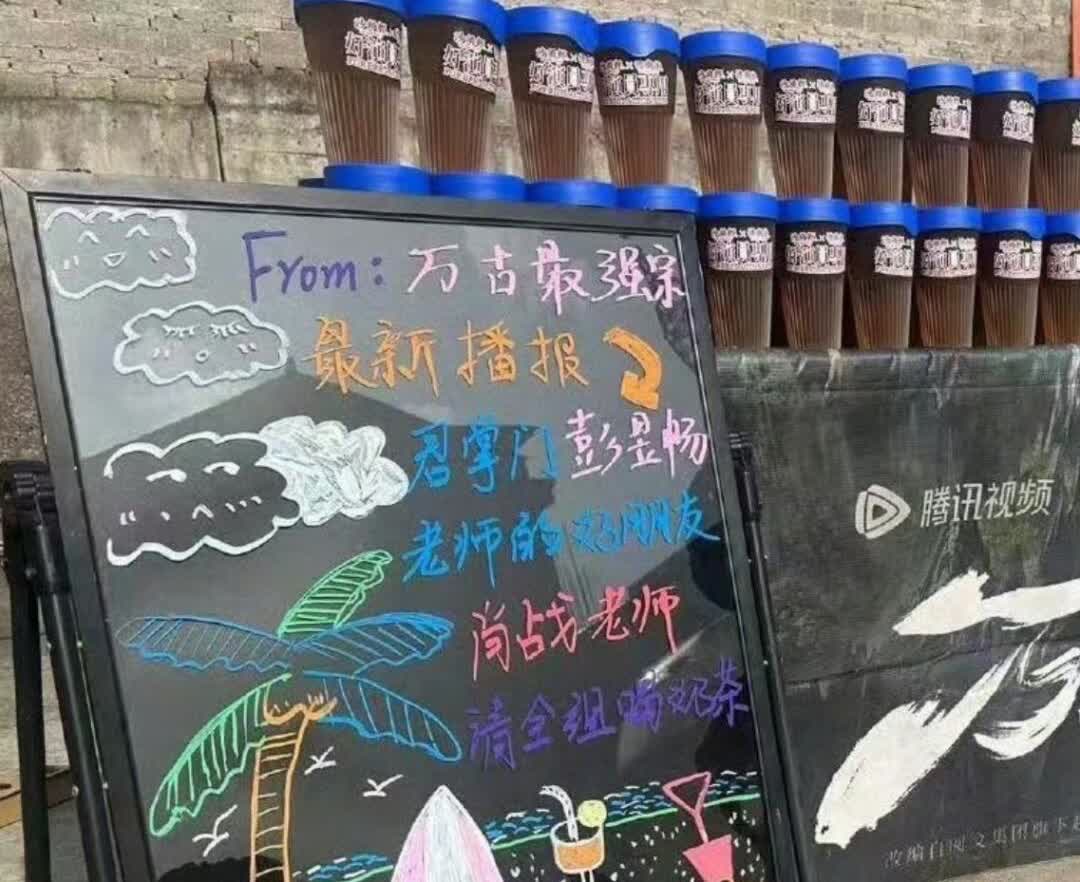 From: 万古最强宗
最新播报
君掌门 彭昱畅
老师的好朋友
肖战老师
请全组喝奶茶
腾讯视频
万
改编自阅文集团旗下